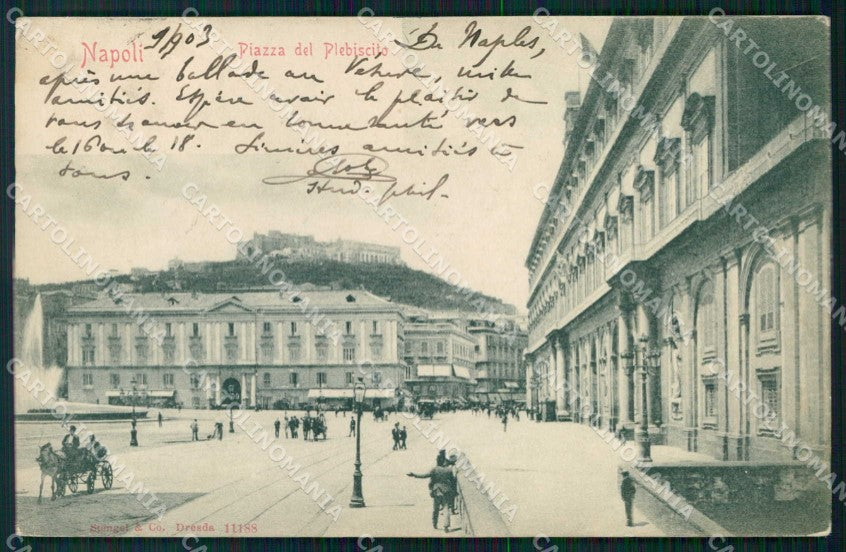 Napoli
Piazza del Plebiscito
1903
De Naples,
après une ballade au Vésuve, mille
amitiés. Espère avoir le plaisir de
vous trouver en bonne santé vers
le 16 ou le 18. Sincères amitiés à
tous.
Stud. phil.
Stengel & Co. Dresda 11188
CARTOLINOMANIA